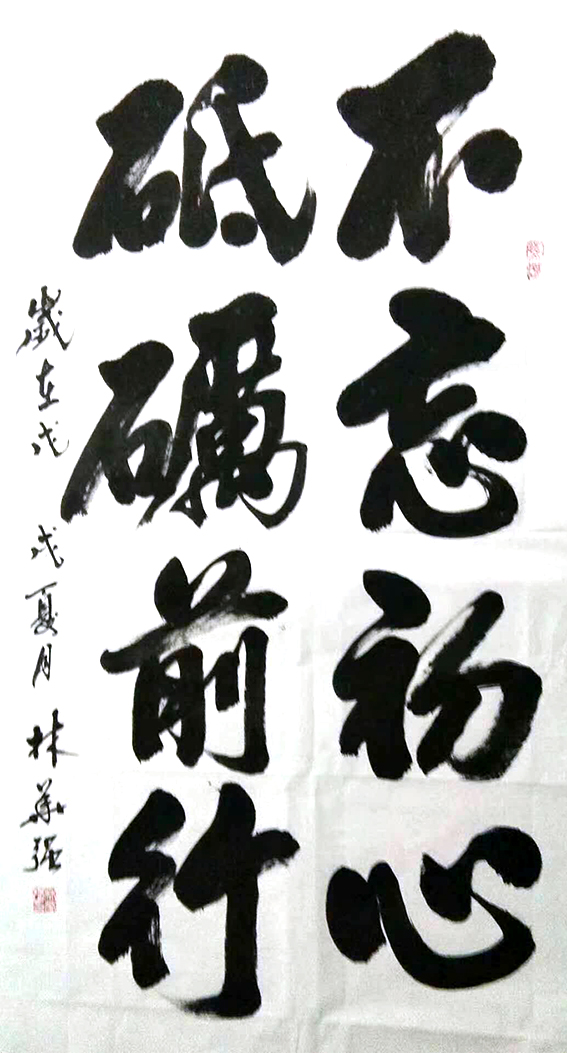 不忘初心
砥礪前行
歲在戊戌夏月林華强